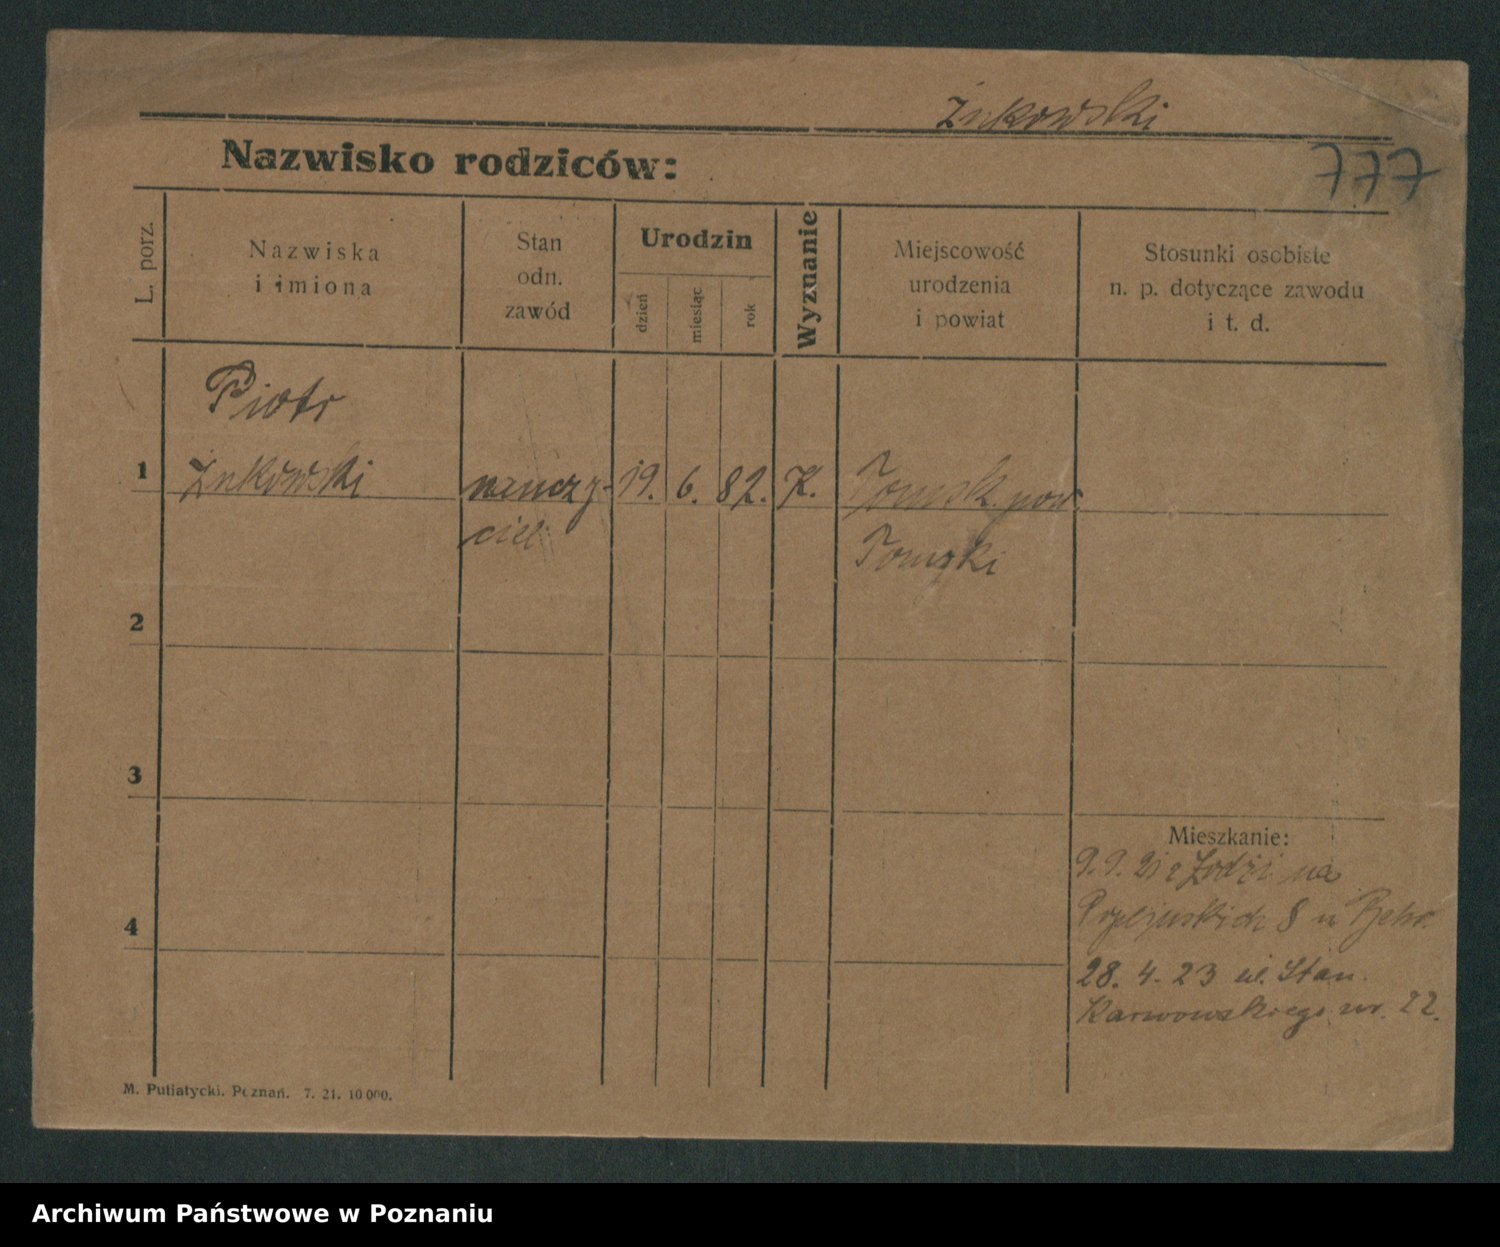 Żukowski
Nazwisko rodziców:
777
L. porz.
Nazwiska
i imiona
Stan
odn.
zawód
Urodzin
dzień
miesiąc
rok
Wyznanie
Miejscowość
urodzenia
i powiat
Stosunki osobiste
n. p. dotyczące zawodu
i t. d.
Piotr
1 Żukowski nauczy- 19. 6. 82. K. Tomsk pow.
ciel Tomski
2
3
Mieszkanie:
z Łodzi na
8 u
4
28. 4. 23 ul. Stan.
Karwowskiego nr. 22.
M. Putiatycki. Poznań. 7. 21. 10 000.
Archiwum Państwowe w Poznaniu